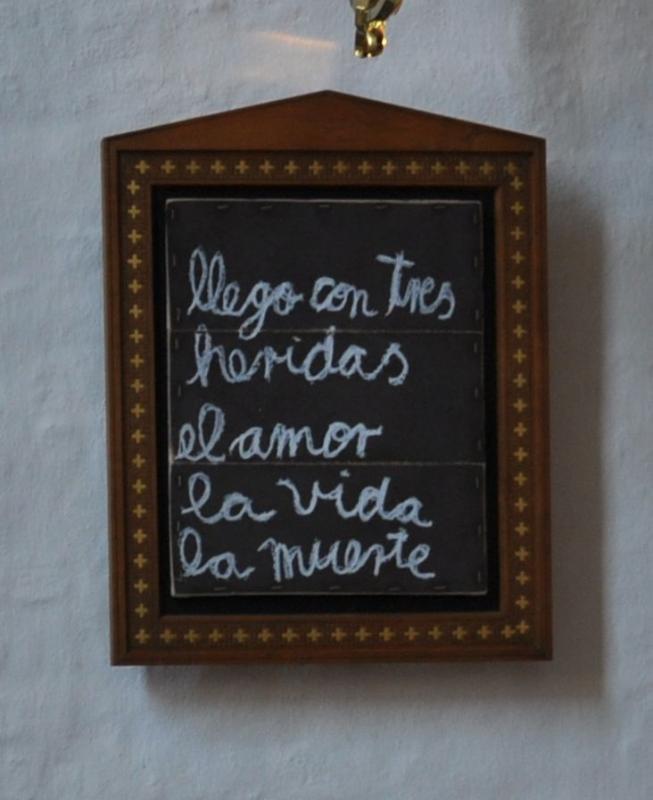 llego con tres
heridas
el amor
la vida
la muerte